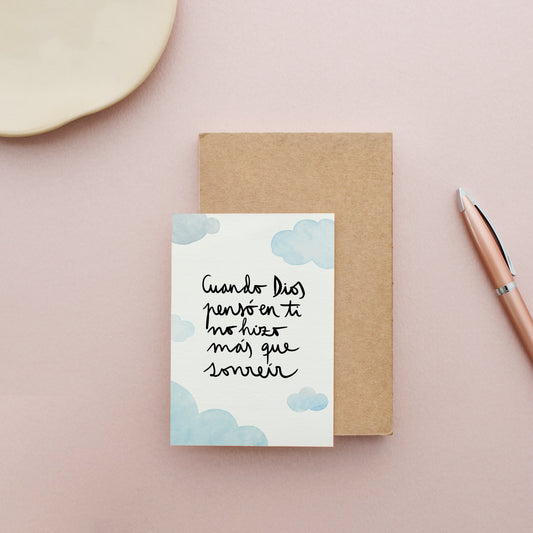 Cuando Dios
pensó en ti
no hizo
más que
sonreír